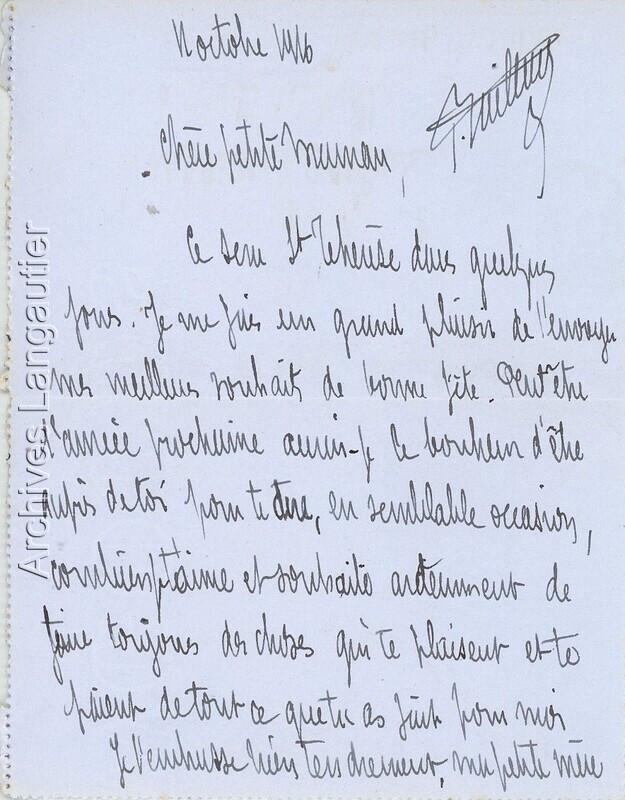 octobre 1916
G. Guillaut
Chère petite Maman,
Ce sera Ste Thérèse dans quelques
jours. Je me fais un grand plaisir de t'envoyer
mes meilleurs souhaits de bonne fête. Peut-être
l'année prochaine aurai-je le bonheur d'être
auprès de toi pour te dire, en semblable occasion,
combien je t'aime et souhaite ardemment de
faire toujours des choses qui te plaisent et te
paient de tout ce que tu as fait pour moi
Je t'embrasse bien tendrement, ma petite mère
Archives Langautier